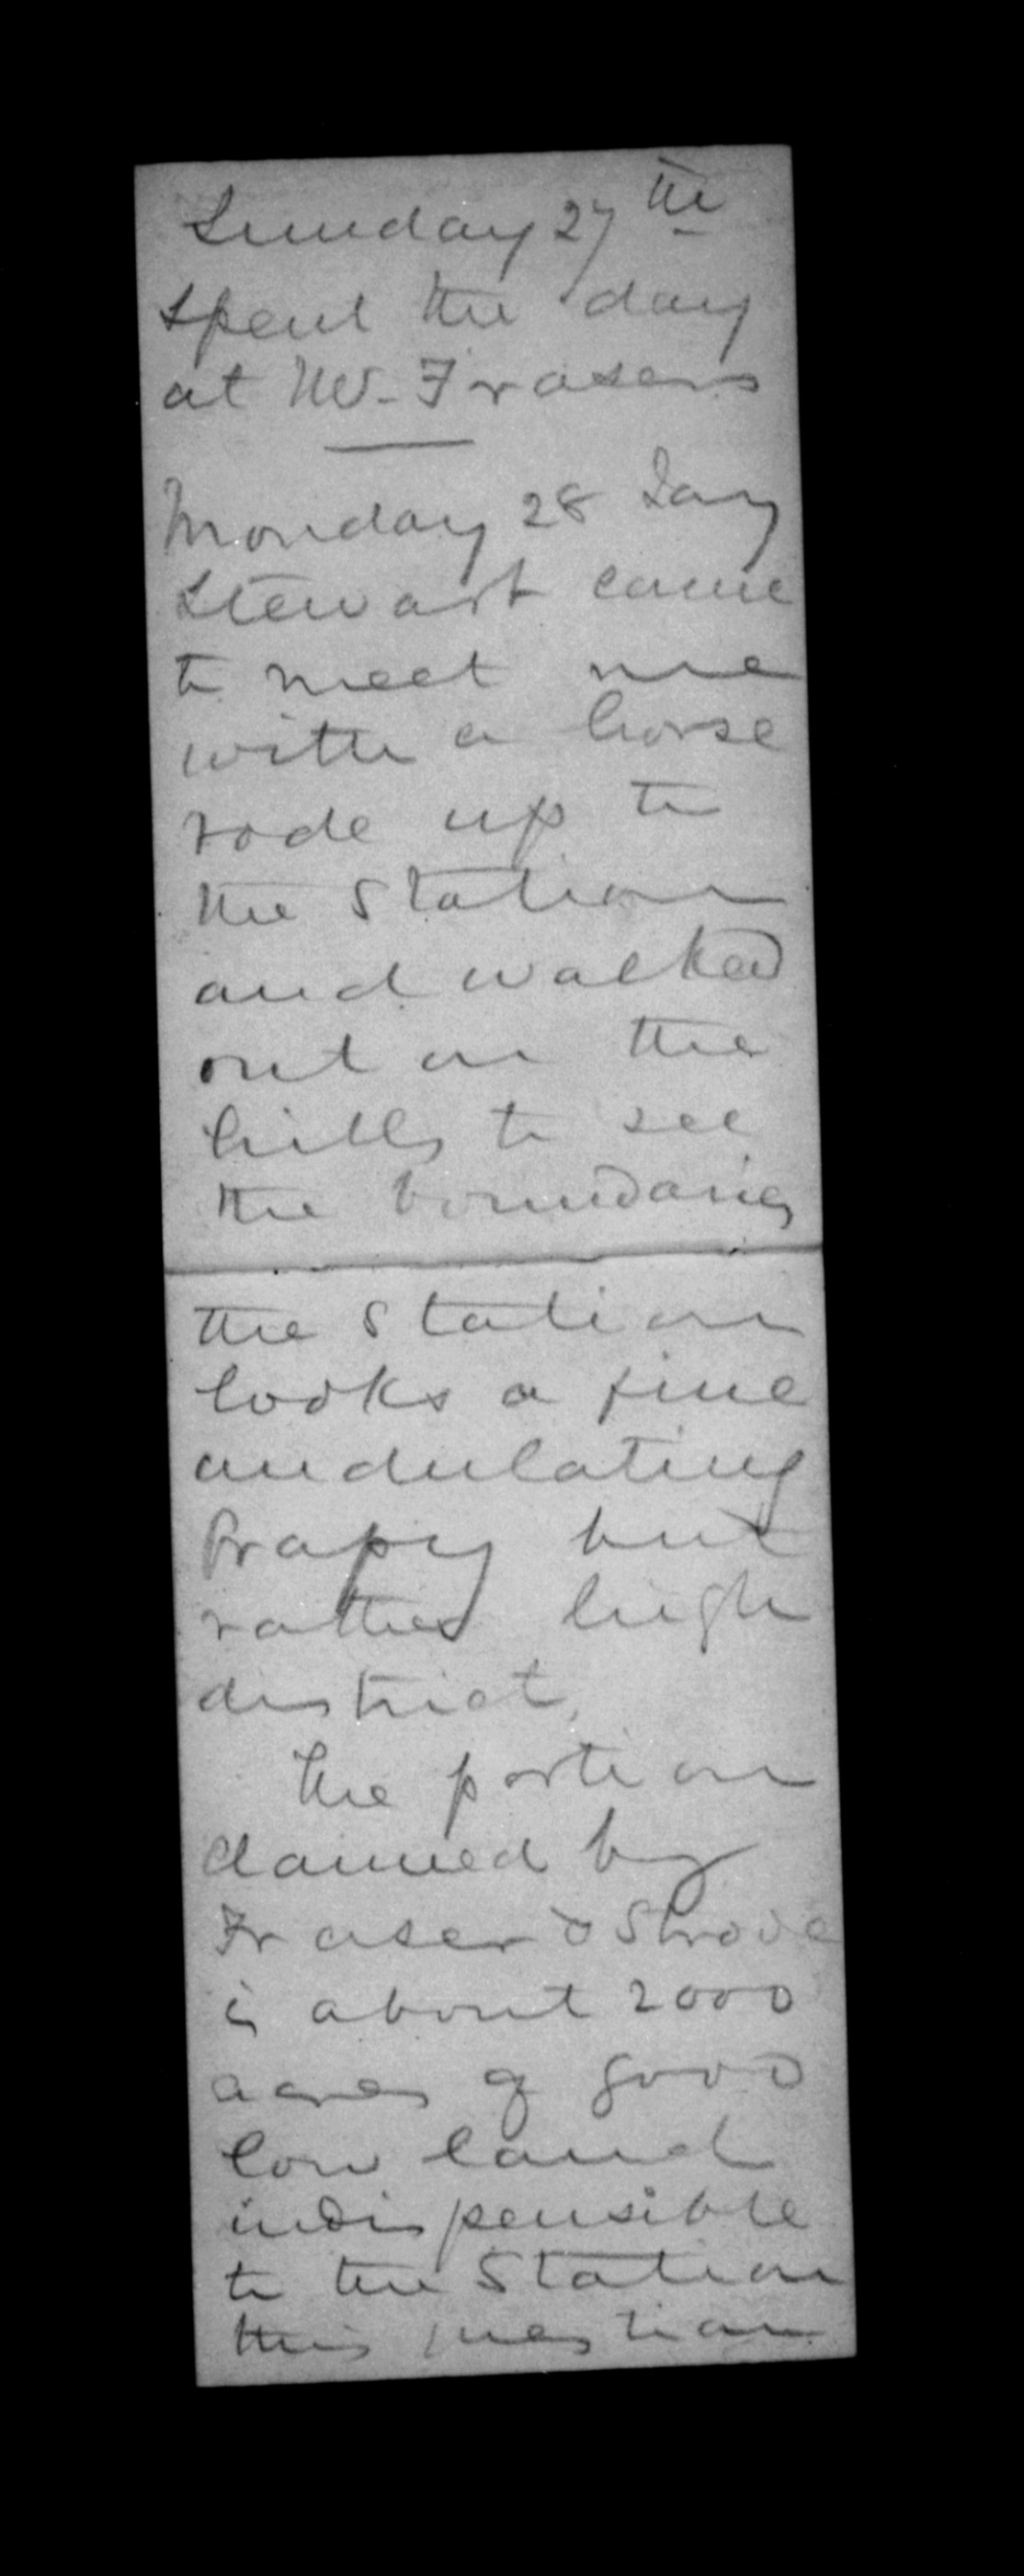 Sunday 27th
Spent the day
at Mr. Frasers
Monday 28 Jany
Stewart came
to meet me
with a horse
rode up to
the Station
and walked
out on the
hills to see
the boundaries
the Station
looks a fine
undulating
but
rather high
district.
The portion
claimed by
Fraser &
is about 2000
acres of good
low land
indispensible
to the Station
this question